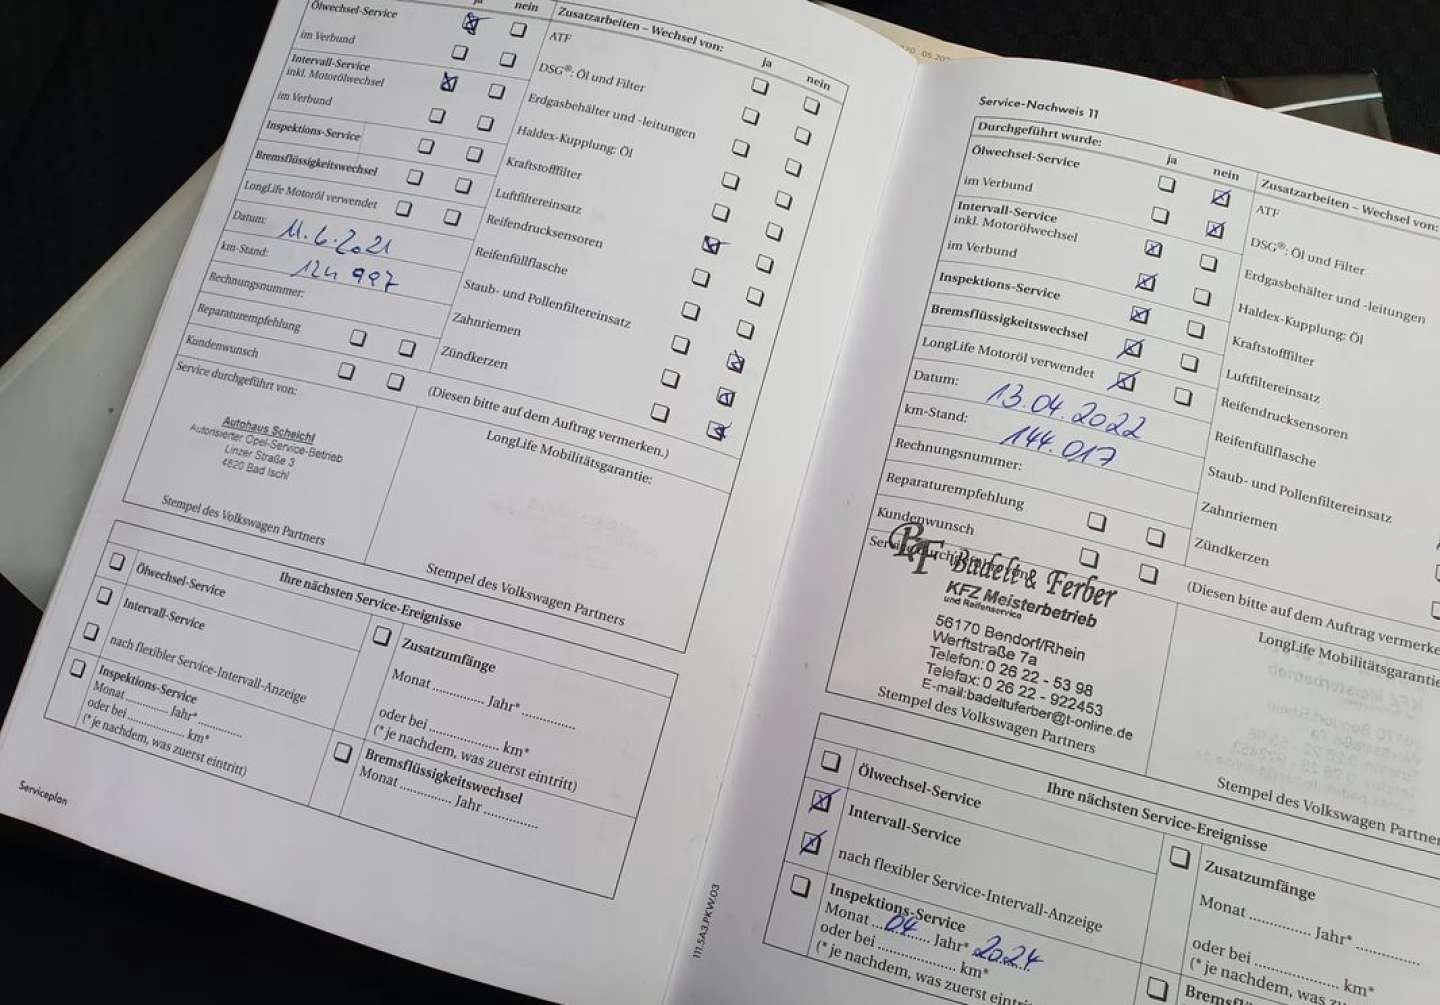 ja nein
Ölwechsel-Service
im Verbund
Intervall-Service
inkl. Motorölwechsel
im Verbund
Inspektions-Service
Bremsflüssigkeitswechsel
LongLife Motoröl verwendet
Datum: 11.6.2021
km-Stand: 124 997
Rechnungsnummer:
Reparaturempfehlung
Kundenwunsch
Service durchgeführt von:
Autohaus Scheichl
Autorisierter Opel-Service-Betrieb
Linzer Straße 3
4820 Bad Ischl
Stempel des Volkswagen Partners
Zusatzarbeiten – Wechsel von:
ja nein
ATF
DSG®: Öl und Filter
Erdgasbehälter und -leitungen
Haldex-Kupplung: Öl
Kraftstofffilter
Luftfiltereinsatz
Reifendrucksensoren
Reifenfüllflasche
Staub- und Pollenfiltereinsatz
Zahnriemen
Zündkerzen
(Diesen bitte auf dem Auftrag vermerken.)
LongLife Mobilitätsgarantie:
Stempel des Volkswagen Partners
Ihre nächsten Service-Ereignisse
Ölwechsel-Service
Intervall-Service
nach flexibler Service-Intervall-Anzeige
Inspektions-Service
Monat ............. Jahr* ............
oder bei .................. km*
(* je nachdem, was zuerst eintritt)
Zusatzumfänge
Monat ............. Jahr* ..............
oder bei .................. km*
(* je nachdem, was zuerst eintritt)
Bremsflüssigkeitswechsel
Monat ............. Jahr ..............
Serviceplan
111.5A3.PKW.03
Service-Nachweis 11
Durchgeführt wurde:
ja nein
Ölwechsel-Service
im Verbund
Intervall-Service
inkl. Motorölwechsel
im Verbund
Inspektions-Service
Bremsflüssigkeitswechsel
LongLife Motoröl verwendet
Datum: 13.04.2022
km-Stand: 144.017
Rechnungsnummer:
Reparaturempfehlung
Kundenwunsch
BF Badelt & Ferber
KFZ Meisterbetrieb
und Reifenservice
56170 Bendorf/Rhein
Werftstraße 7a
Telefon: 0 26 22 - 53 98
Telefax: 0 26 22 - 922453
E-mail:badeltuferber@t-online.de
Stempel des Volkswagen Partners
Zusatzarbeiten – Wechsel von:
ATF
DSG®: Öl und Filter
Erdgasbehälter und -leitungen
Haldex-Kupplung: Öl
Kraftstofffilter
Luftfiltereinsatz
Reifendrucksensoren
Reifenfüllflasche
Staub- und Pollenfiltereinsatz
Zahnriemen
Zündkerzen
(Diesen bitte auf dem Auftrag vermerke
LongLife Mobilitätsgarantie
Stempel des Volkswagen Partner
Ihre nächsten Service-Ereignisse
Ölwechsel-Service
Intervall-Service
nach flexibler Service-Intervall-Anzeige
Inspektions-Service
Monat 04 Jahr* 2024
oder bei .................. km*
(* je nachdem, was zuerst eintritt)
Zusatzumfänge
Monat ............. Jahr* ..............
oder bei .................. km*
(* je nachdem, was zuerst ein